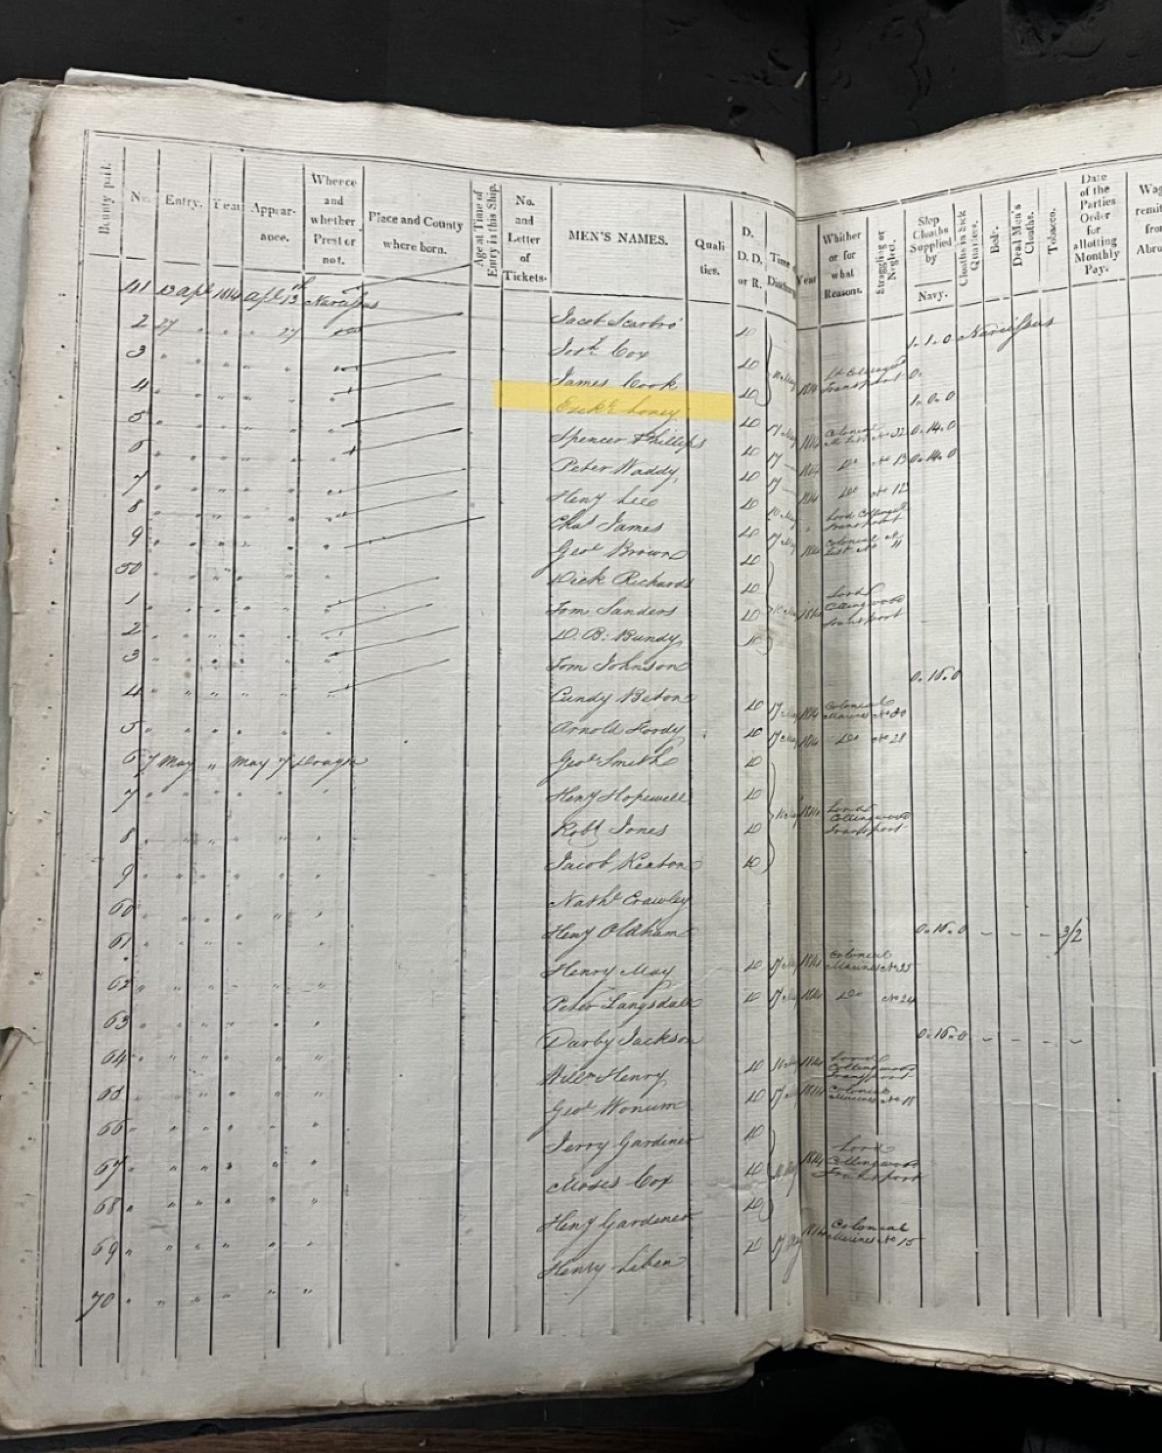 Bounty paid. No. Entry. Year Appearance. Whence and whether Prest or not. Place and County where born. Age at Time of Entry in this Ship. No. and Letter of Tickets. MEN'S NAMES. Qualities. D. D.D. or R. Time of Discharge Year Whither or for what Reasons. Straggling or Neglect. Slop Cloaths Supplied by Navy. Cloaths in Sick Quarters. Beds. Dead Men's Cloaths. Tobacco. Date of the Parties Order for allotting Monthly Pay.
41 13 Apl 1814 Apl 13th Narcissus Jacob Scarbro' D 1.1.0 Narcissus
2 27 " " 27 Josh. Cox D
3 James Cook D 1814 Transport
4 Ezekl. Loney D 1.0.0
5 Spencer Phillips D 17 May 1814 Colonial 0.14.0
6 Peter Waddy D 17 1814 Do No 13 0.14.0
7 Heny Lee D 17 1814 Do No 12
8 Chas James D Transport
9 Geoe Brown D 17 May 1814 Colonial No 11
50 Dick Richards D
1 Tom Sanders D 1814 Lord Collingwood Transport
2 D. B. Bundy D
3 Tom Johnson 0.16.0
4 Cundy Beton D 17 May 1814 Colonial Marines No 20
5 Arnold Hordy D 17 May 1814 Do No 28
6 7 May " May 7 Dragon Geoe Smith D
7 Heny Hopewell D
8 Robt Jones D 1814 Lord Collingwood Transport
9 Jacob Keaton D
60 Nathl Crawley
61 Heny Oldham 0.16.0 - - - 3/2
62 Henry May D 17 May 1814 Colonial Marines No 25
63 Peter Langsdale D 17 May 1814 Do No 24
64 Darby Jackson 0.16.0 - - - -
65 Willm Henry D 1814 Lord Collingwood Transport
66 Geoe Wonum D 17 May 1814 Colonial Marines No 18
67 Jerry Gardiner D
68 Moses Cox D 1814 Lord Collingwood Transport
69 Heny Gardener D
70 Henry Leben D 17 May 1814 Colonial Marines No 15